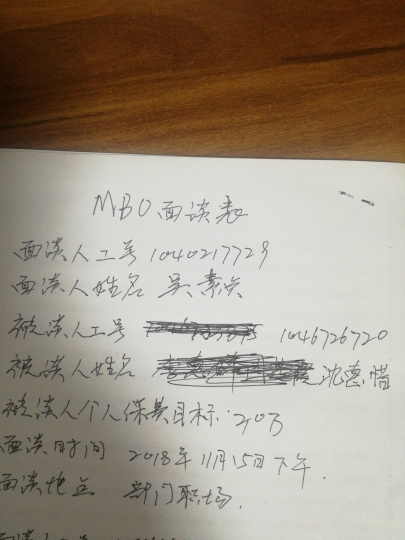 MBO面谈表
面谈人工号 1040217729
面谈人姓名 吴素兵
被谈人工号 1046726720
被谈人姓名 沈惠惜
被谈人个人保费目标:20万
面谈时间 2018年11月15日下午.
面谈地点 部门职场.